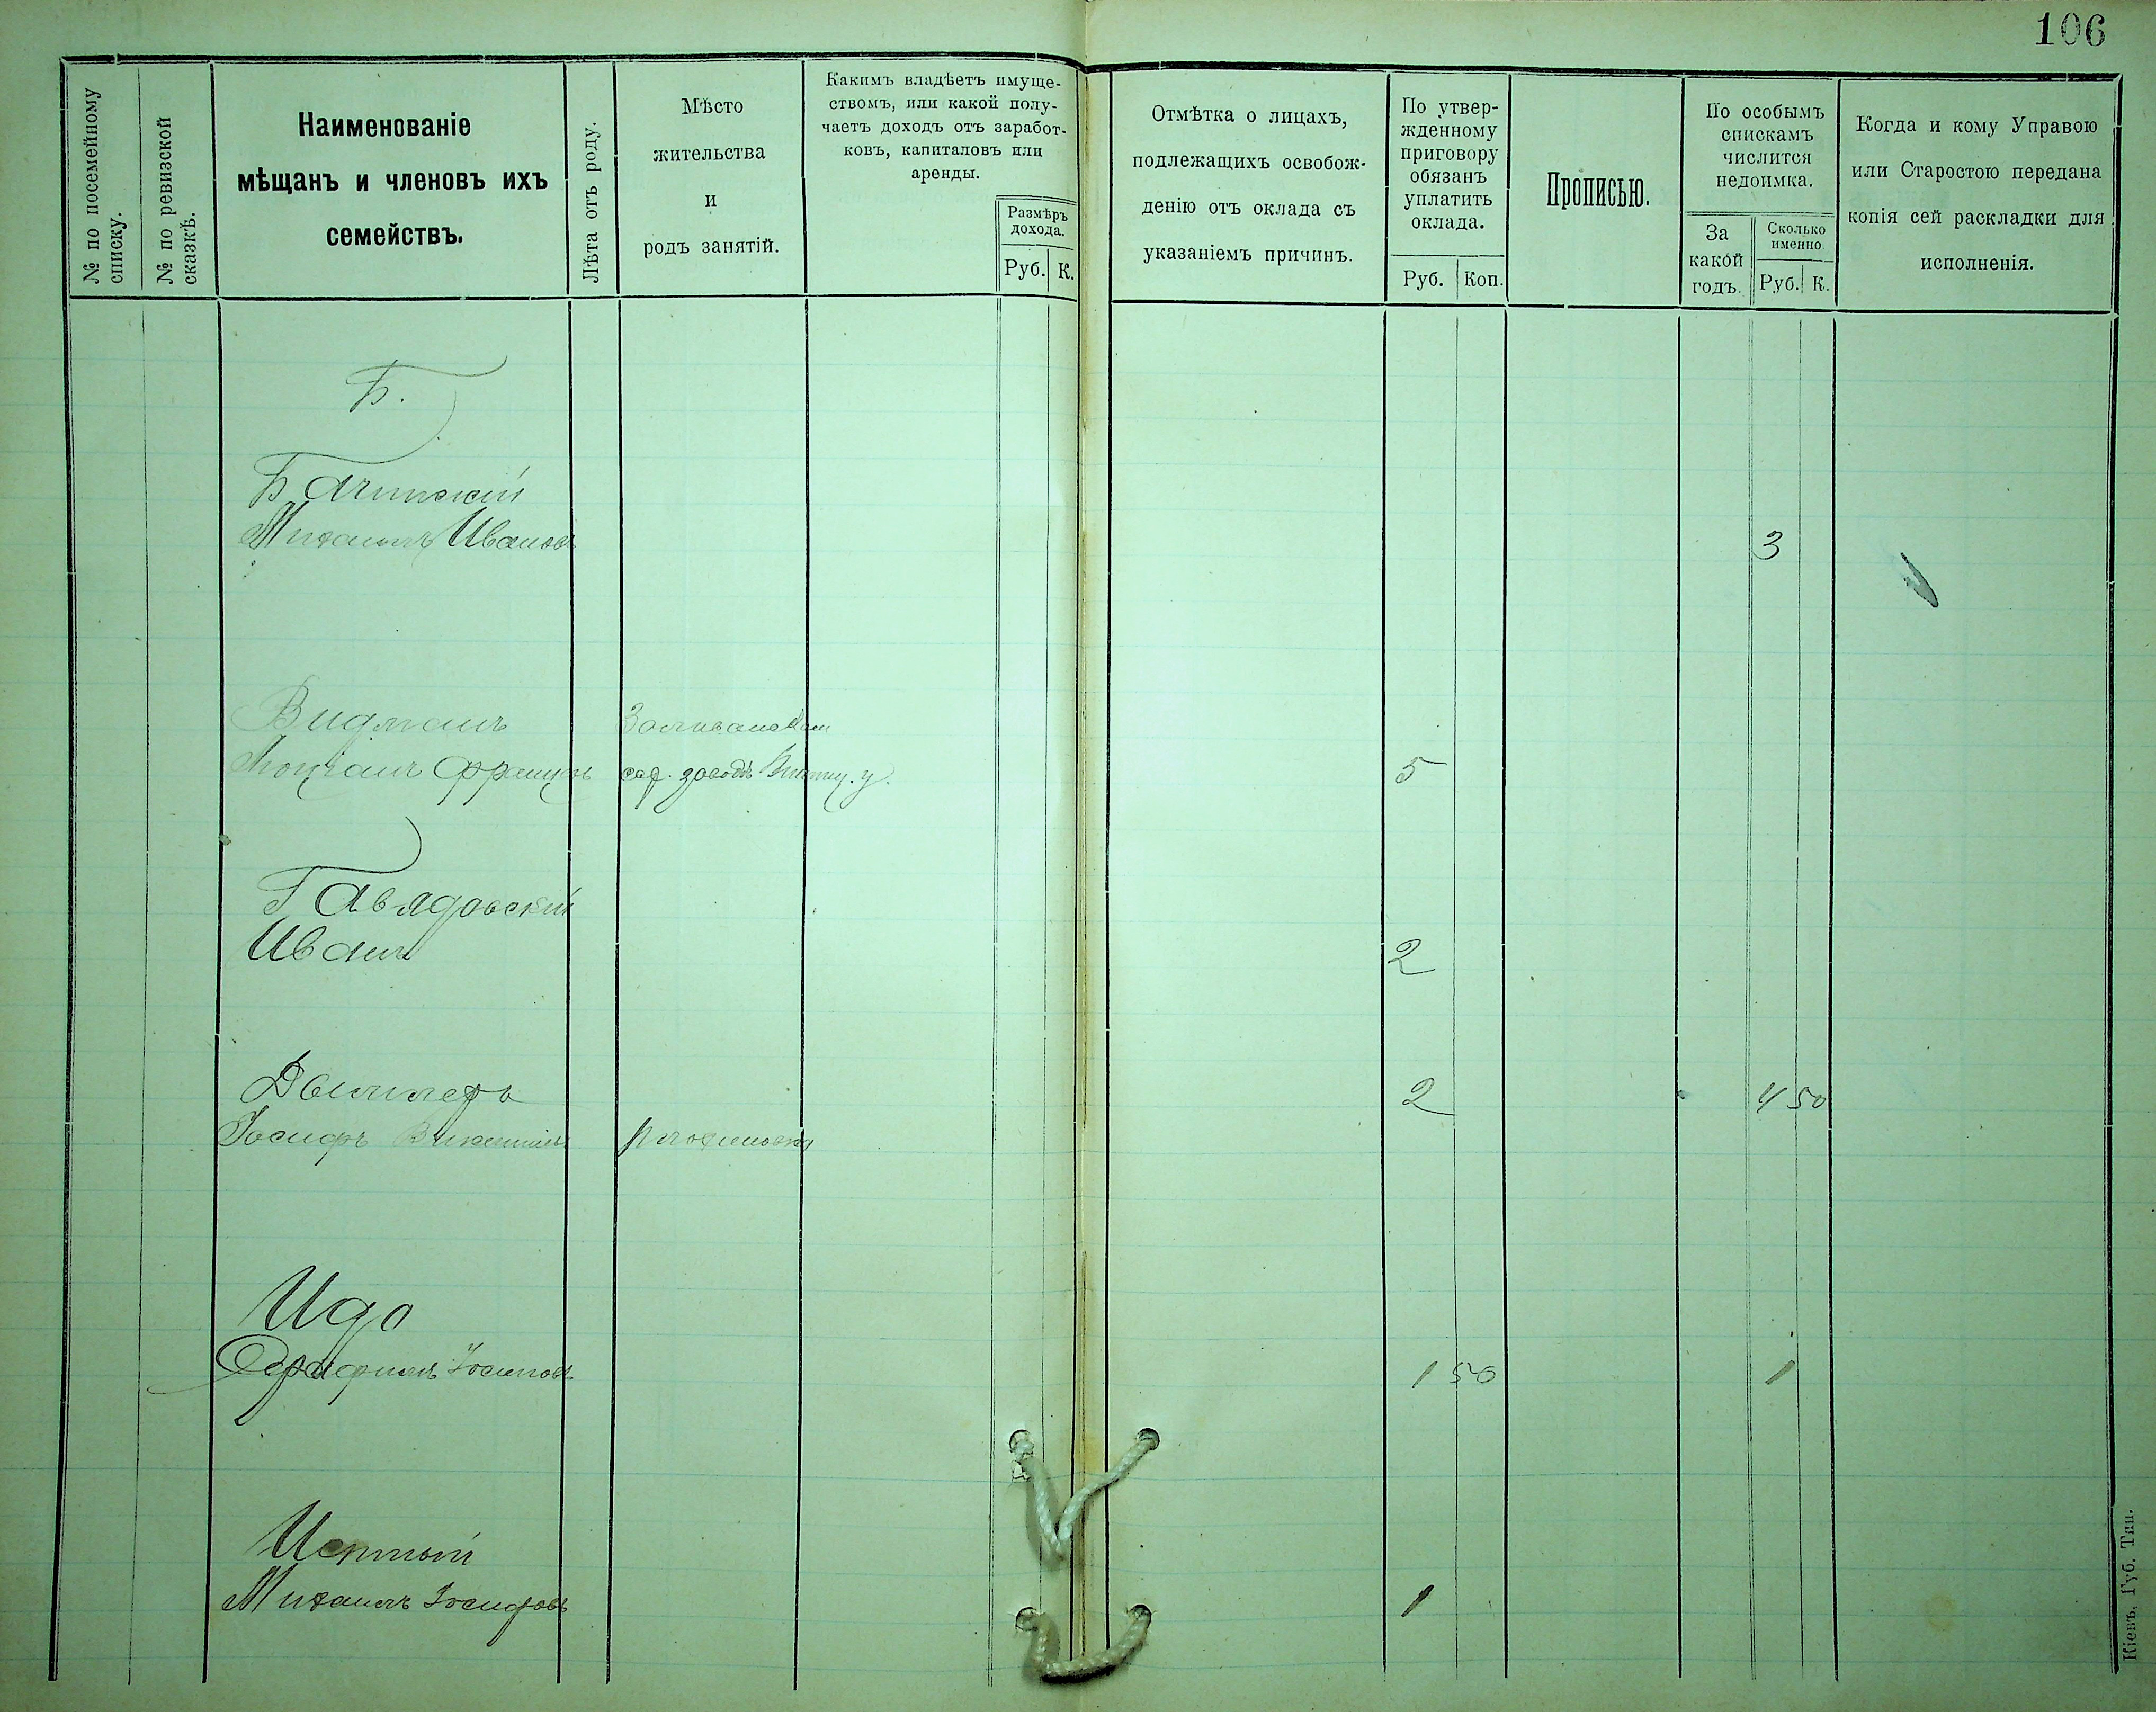 106
№ по посемейному
списку.
№ по ревизской
сказкѣ.
Наименованіе
мѣщанъ и членовъ ихъ
семействъ.
Лѣта отъ роду.
Мѣсто
жительства
и
родъ занятій.
Какимъ владѣетъ имуще-
ствомъ, или какой полу-
чаетъ доходъ отъ заработ-
ковъ, капиталовъ или
аренды.
Размѣръ
дохода.
Руб. К.
Отмѣтка о лицахъ,
подлежащихъ освобож-
денію отъ оклада съ
указаніемъ причинъ.
По утвер-
жденному
приговору
обязанъ
уплатить
оклада.
Руб. Коп.
Прописью.
По особымъ
спискамъ
числится
недоимка.
За
какой
годъ.
Сколько
именно
Руб. К.
Когда и кому Управою
или Старостою передана
копія сей раскладки для
исполненія.
Б.
Бачинскій
Михаилъ Ивановъ 3
Видманъ
Францъ сах. заводъ Винниц. у. 5
Гавядовскій
Иванъ 2
2 4 50
Іосифъ Викентіевъ
Идо
Серафимъ Іосиповъ 1 50 1
Михаилъ Іосифовъ 1
Кіевъ, Губ. Тип.